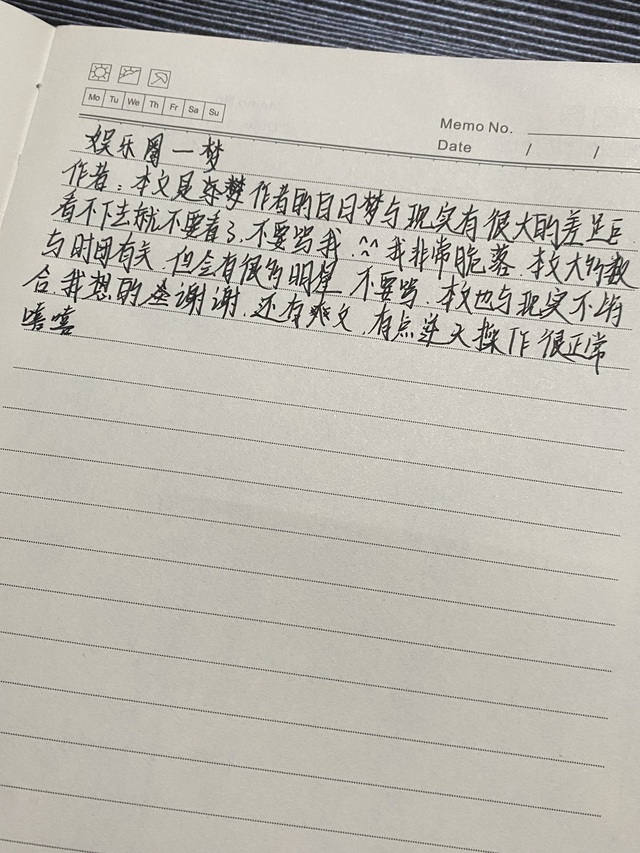 Mo Tu We Th Fr Sa Su
Memo No.
Date / /
娱乐圈一梦
作者:本文是 作者的白日梦与现实有很大的差距
看不下去就不要看了.不要骂我.^^我非常脆落 本文大多数
与时团有关 但会有很多明星 不要骂.本文也与现实不
合我想的 谢谢.还有爽文,有点逆天操作很正常
嘻嘻